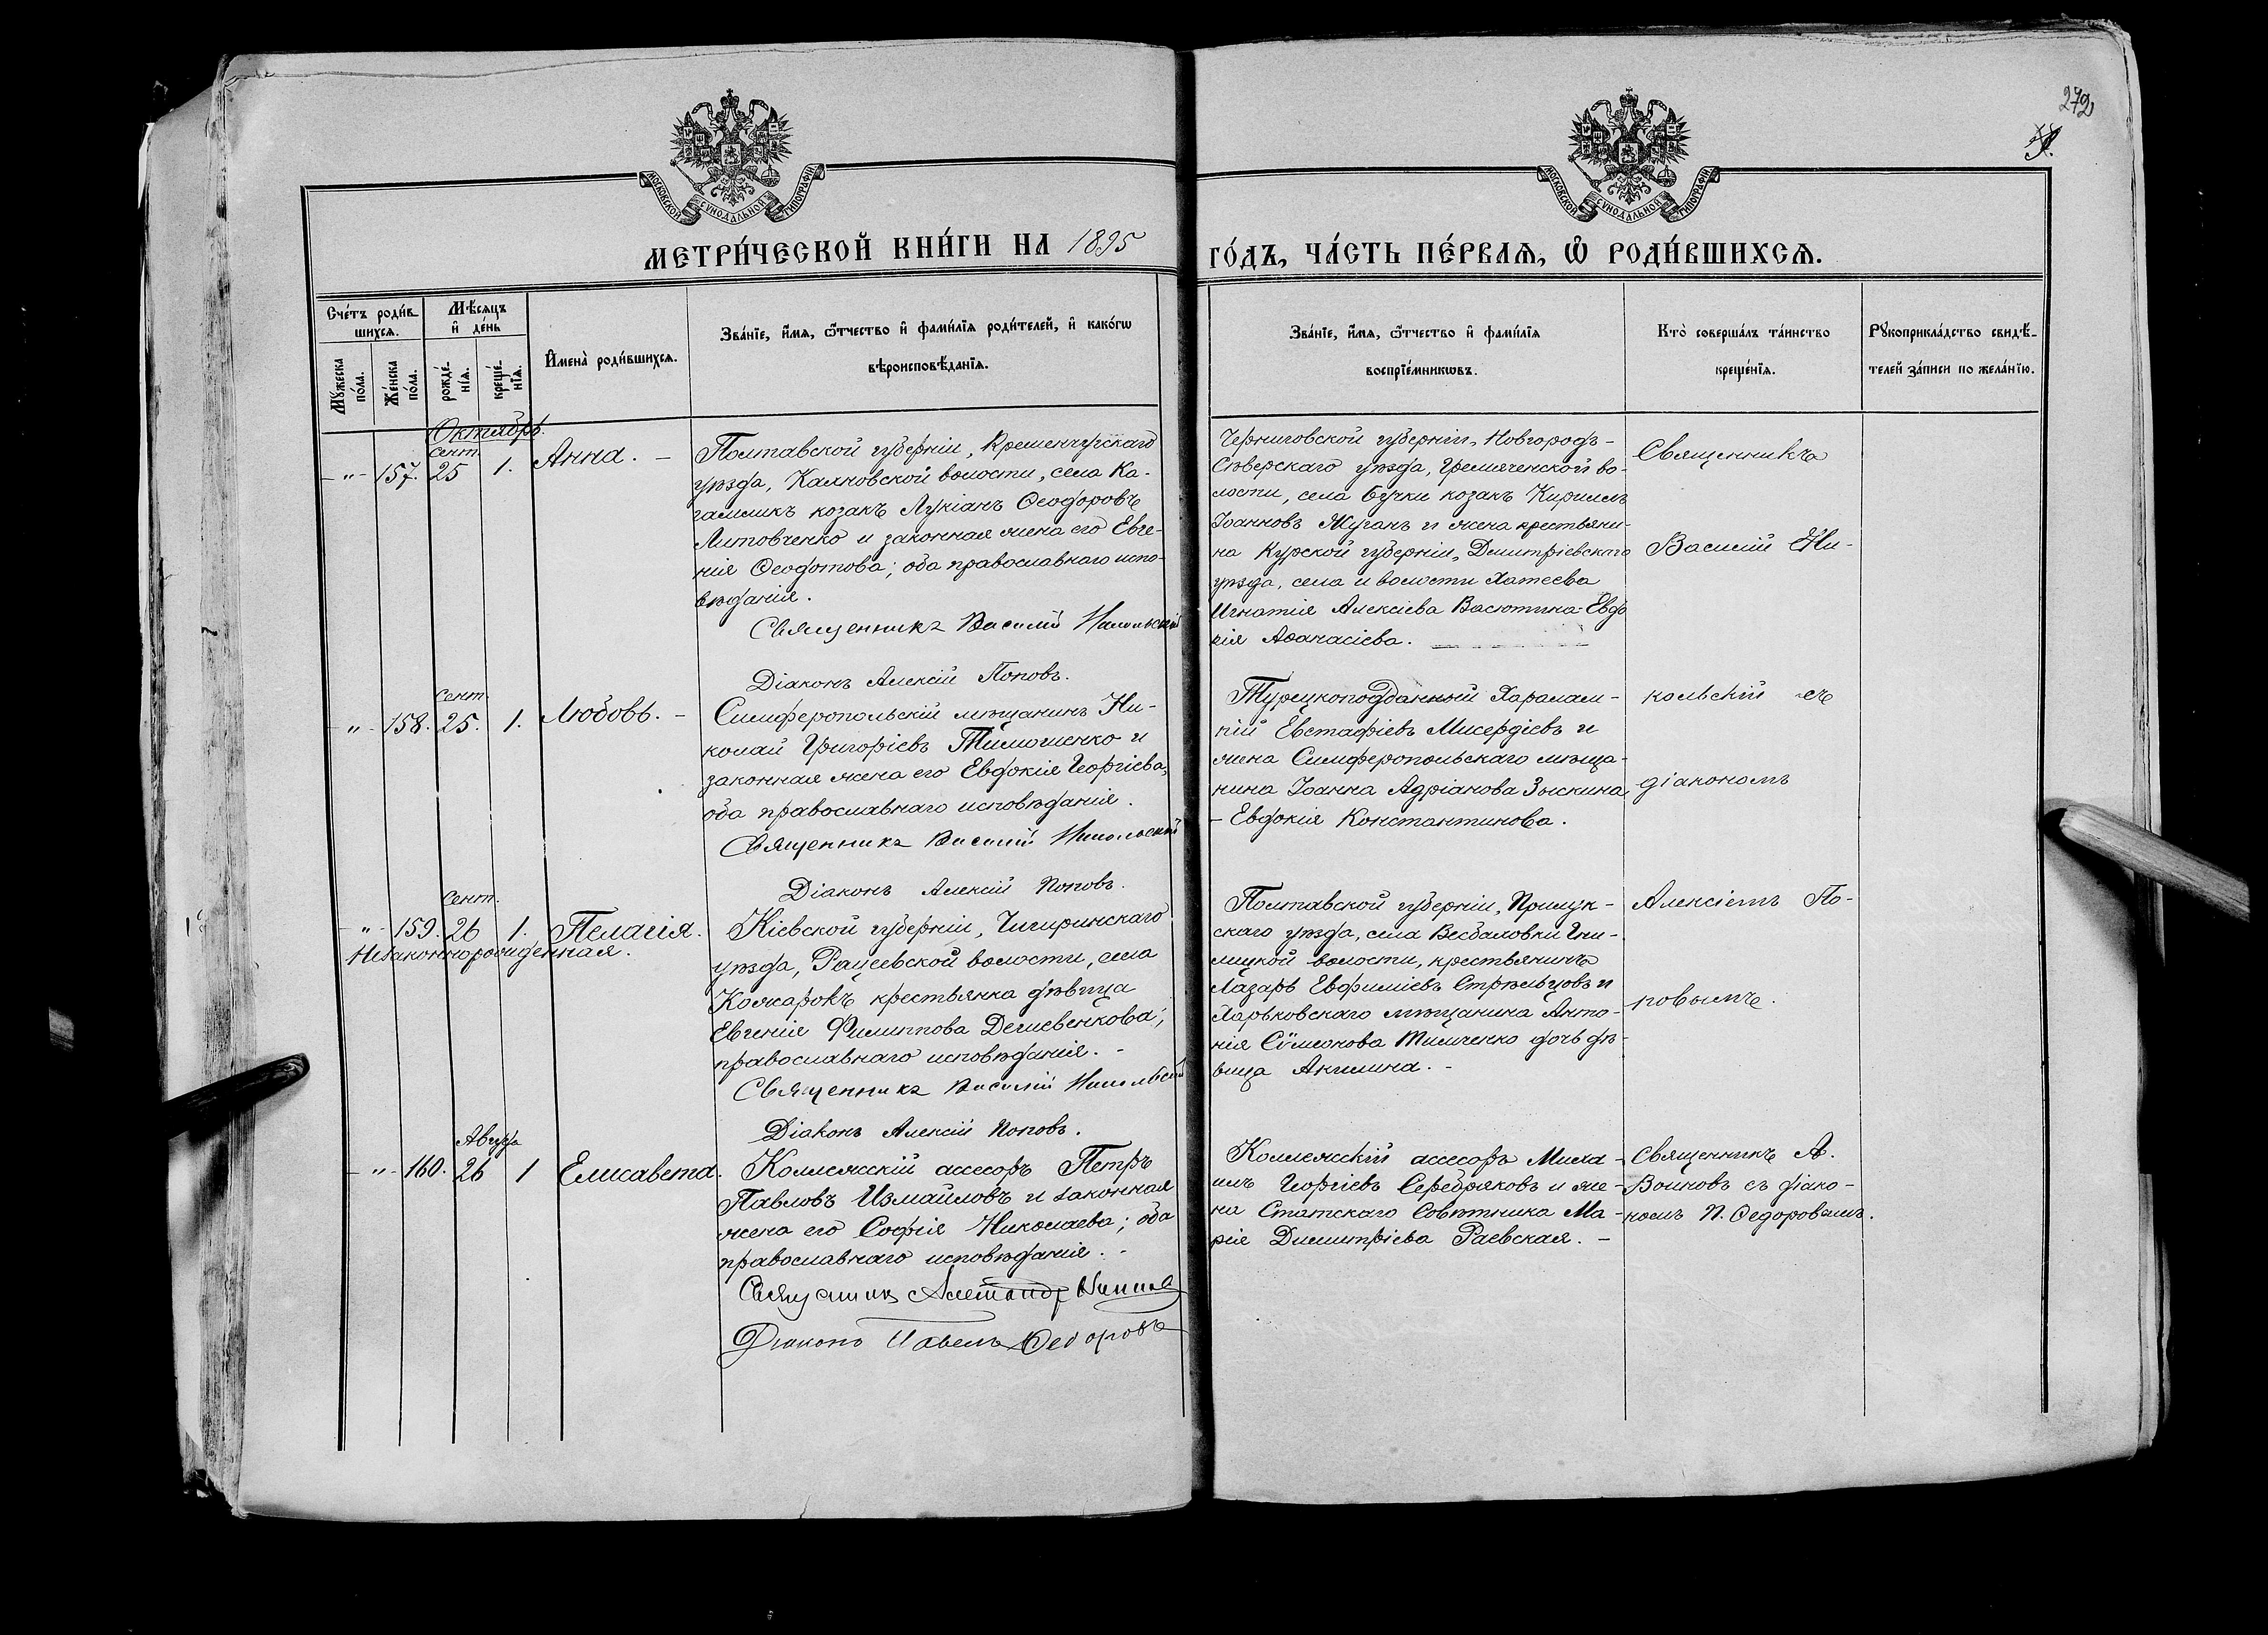 272
МОСКОВСКОЙ СѴНОДАЛЬНОЙ ТИПОГРАФІИ
МОСКОВСКОЙ СѴНОДАЛЬНОЙ ТИПОГРАФІИ
МЕТРИ́ЧЕСКОЙ КНИ́ГИ НА 1895
ГО́ДЪ, ЧА́СТЬ ПЕ́РВАѦ, Ѡ҆ РОДИ́ВШИХСѦ.
Сче́тъ роди́в
шихсѧ.
Мꙋ́жеска
по́ла.
Же́нска
по́ла.
Мѣ́сѧцъ
и҆ де́нь
рожде́-
нїѧ.
креще́-
нїѧ.
И҆мена̀ роди́вшихсѧ.
Зва́нїе, и҆́мѧ, ѻ҆́тчество и҆ фами́лїѧ роди́телей, и҆ како́гѡ
вѣроисповѣ́данїѧ.
Зва́нїе, и҆́мѧ, ѻ҆́тчество и҆ фами́лїѧ
воспрїе́мникѡвъ.
Кто̀ соверша́лъ та́инство
креще́нїѧ.
Рꙋкоприкла́дство свидѣ́-
телей за́писи по жела́нїю.
Октябрь.
сент.
- " - 157. 25 1. Анна. -
Полтавской губерніи, Кременчугскаго
уѣзда, Каяновской волости, села Ка-
гамликъ козакъ Лукіанъ Ѳеодоровъ
Литовченко и законная жена его Евге-
нія Ѳеодотова; оба православнаго испо-
вѣданія.
Священникъ Василій Никольскій
Діаконъ Алексій Поповъ.
Черниговской губерніи, Новгородъ-
Сѣверскаго уѣзда, Гремяченской во-
лости, села Бучки козакъ Кириллъ
Іоанновъ Жуганъ и жена крестьяни-
на Курской губерніи, Димитріевскаго
уѣзда, села и волости Хатеева
Игнатія Алексіева Васютина Евдо
кія Аѳанасіева.
Священникъ
Василій Ни-
сент.
" - 158. 25. 1. Любовь. -
Симферопольскій мѣщанинъ Ни-
колай Григоріевъ Тимошенко и
законная жена его Евдокія Георгіева,
оба православнаго исповѣданія.
Священникъ Василій Никольскій
Діаконъ Алексій Поповъ.
Турецкоподданный Харалам-
пій Евстафіевъ Мисердіевъ и
жена Симферопольскаго мѣща-
нина Іоанна Адріанова Зыскина
- Евдокія Константинова.
кольскій съ
діакономъ
сент.
- " - 159. 26 1. Пелагія.
Незаконнорожденная.
Кіевской губерніи, Чигиринскаго
уѣзда, Рацевской волости, села
Кожарокъ крестьянка дѣвица
Евгенія Филиппова Дегшевенкова;
православнаго исповѣданія. -
Священникъ Василій Никольскій
Діаконъ Алексій Поповъ.
Полтавской губерніи, Прилук-
скаго уѣзда, села Весбаловки Гни-
лицкой волости, крестьянинъ
Лазарь Евфиміевъ Стрѣльцовъ и
Харьковскаго мѣщанина Анто-
нія Сѵмеонова Тимченко дочь дѣ-
вица Акилина. -
Алексіемъ По-
повымъ.
Августа
- " - 160. 26 1 Елисавета.
Коллежскій ассесоръ Петръ
Павловъ Измайловъ и законная
жена его Софія Николаева; оба
православнаго исповѣданія. -
Священникъ Александръ
Діаконъ Павелъ Ѳедоровъ
Коллежскій ассесоръ Миха-
илъ Георгіевъ Серебряковъ и же-
на Статскаго Совѣтника Ма-
рія Димитріева Раевская. -
Священникъ А.
Воиновъ съ діако-
номъ П. Ѳедоровымъ.